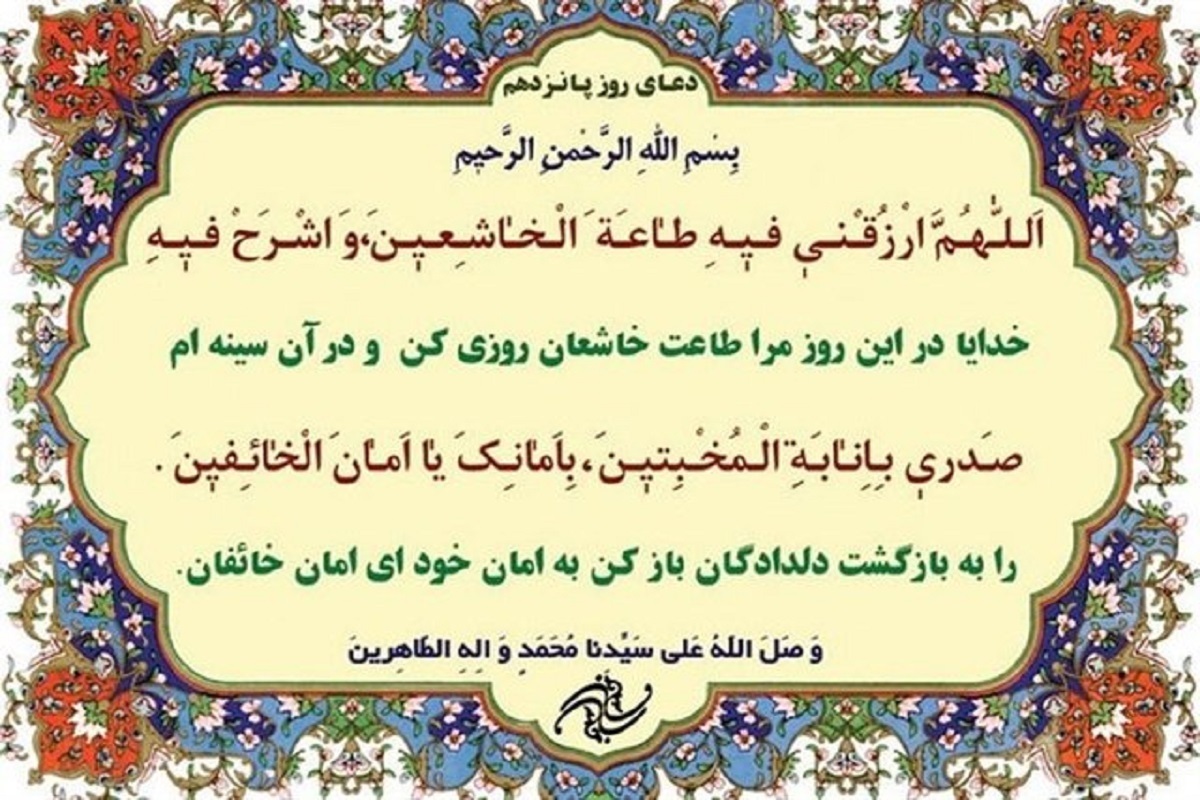 دعای روز پانزدهم
بِسْمِ اللهِ الرَّحْمنِ الرَّحیمِ
اَللّٰهُمَّ ارْزُقْنی فیهِ طاعَةَ الْخاشِعینَ، وَ اشْرَحْ فیهِ
خدایا در این روز مرا طاعت خاشعان روزی کن و در آن سینه ام
صَدری بِاِنابَةِ الْمُخْبِتینَ، بِاَمانِکَ یا اَمانَ الْخائِفینَ.
را به بازگشت دلدادگان باز کن به امان خود ای امان خائفان.
وَ صَلَ اللهُ عَلی سَیِّدنا مُحَمَدٍ وَ الِهِ الطّاهِرینَ